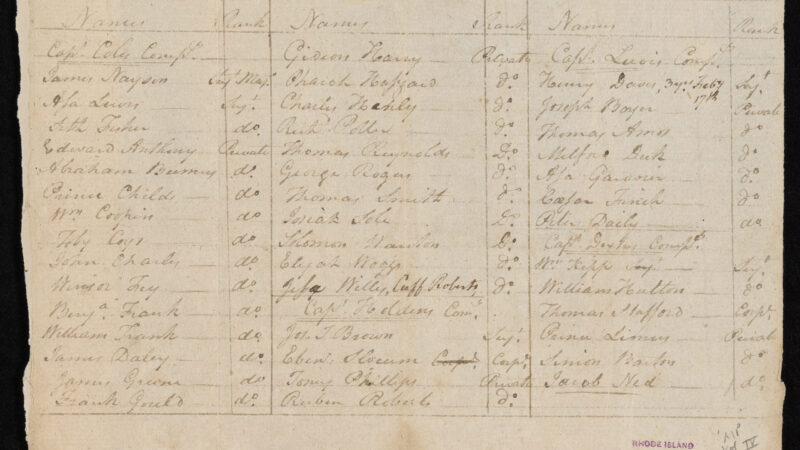 Names Rank
Capt. Coles Compy.
James Nayson Serjt. Maj.
Asa Lewis Serjt.
Seth Fisher do.
Edward Anthony Private
Abraham do.
Prince Childs do
Wm Cookin do.
Toby Coys do.
John Charles do.
Winsor Fry do.
Benja. Frank do.
William Frank do.
James Daley do.
James Greene do.
Frank Gould do.
Names Rank
Gideon Harry Private
Hazzard do.
Charles Henly do.
Richd Potter do.
Thomas Reynolds Do.
George Rogers do.
Thomas Smith do
Josiah Sole Do.
Solomon Wanton Do.
Elijah do.
Willis, Cuff Roberts, do.
Capt. Holdens Comy.
Jos. T Brown Serjt.
Ebenr. Slocum Corpl. Corpl.
Tony Phillips Private
Reuben Roberts do.
Names Rank
Capt. Lewis Compy.
Henry Davis, 3 yrs. Feby 17th Serjt.
Joseph Private
Thomas Amos do
do
Asa Gardner do.
Caesar Finch do.
Peter Daily do
Capt. Dexters Compy.
Wm. Kipp Serjt Serjt.
William Hutton do
Thomas Stafford Corpl.
Prime Limus Private
Simion Barton do
Jacob Ned do.
RHODE ISLAND
IV